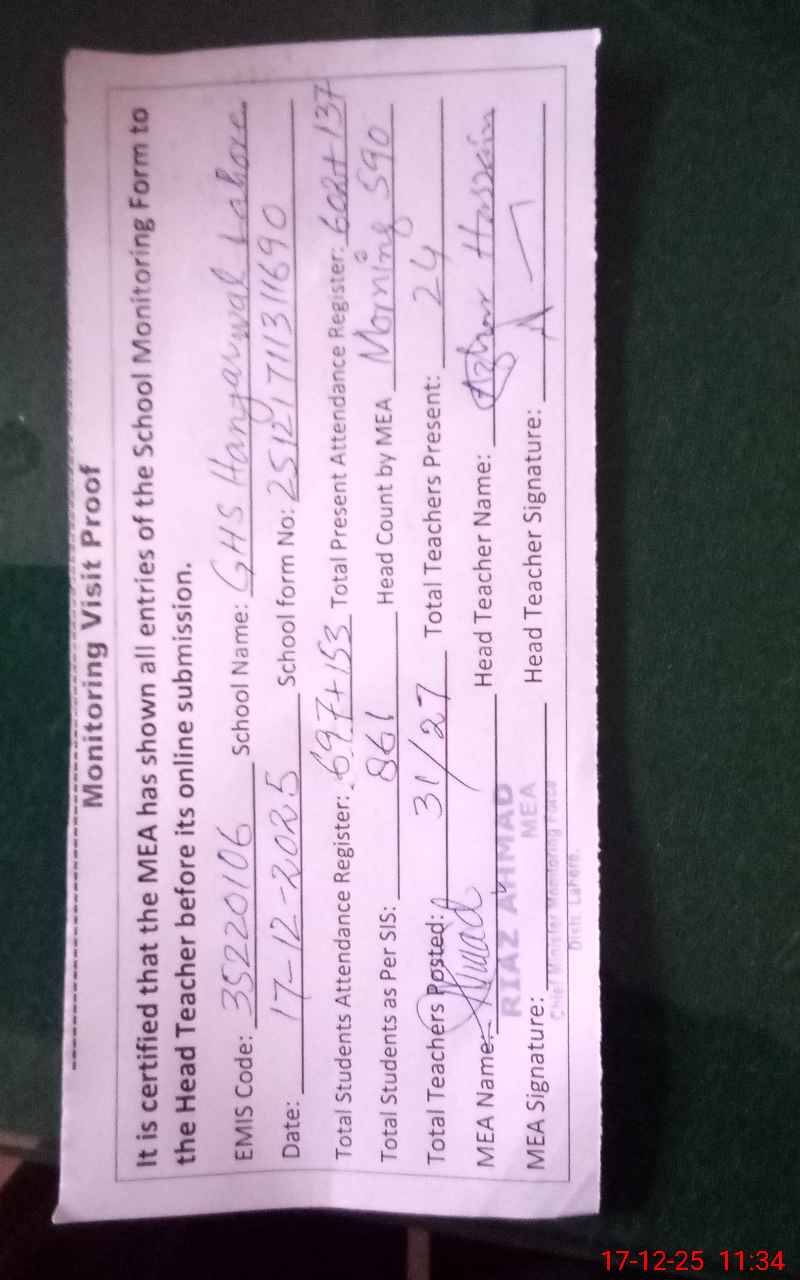 Monitoring Visit Proof
It is certified that the MEA has shown all entries of the School Monitoring Form to
the Head Teacher before its online submission.
EMIS Code: 35220106 School Name: GHS Hanjarwal Lahore.
Date: 17-12-2025 School form No: 2512171131169 0
Total Students Attendance Register: 697+153 Total Present Attendance Register: 602+137
Total Students as Per SIS: 861 Head Count by MEA Morning 590
Total Teachers Posted: 31/27 Total Teachers Present: 24
MEA Name: Head Teacher Name: Azhar Hussain
RIAZ AHMAD
MEA Signature: MEA Head Teacher Signature:
Chief Minister Monitoring Force
Distt. Lahore.
17-12-25 11:34